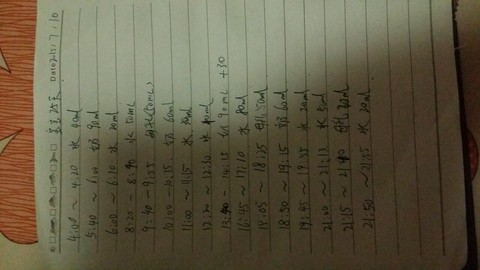 Date 2015.7.10
4:00 ~ 4:20 水 40ml
5:40 ~ 6:00 奶 90ml
6:00 ~ 6:10 水 20ml
8:20 ~ 8:40 水 50ml
9:40 ~ 9:55 母乳(50ml)
10:00 ~ 10:15 奶 60ml
11:00 ~ 11:15 水 30ml
12:20 ~ 12:30 水 40ml
~ 14:15 奶 90ml +30
16:45 ~ 17:10 水 80ml
18:05 ~ 18:25 母乳 50ml
18:50 ~ 19:15 奶 60ml
19:45 ~ 19:55 水 20ml
21:00 ~ 21:13 水 5ml
21:15 ~ 21:40 母乳 20ml
21:50 ~ 21:55 水 30ml